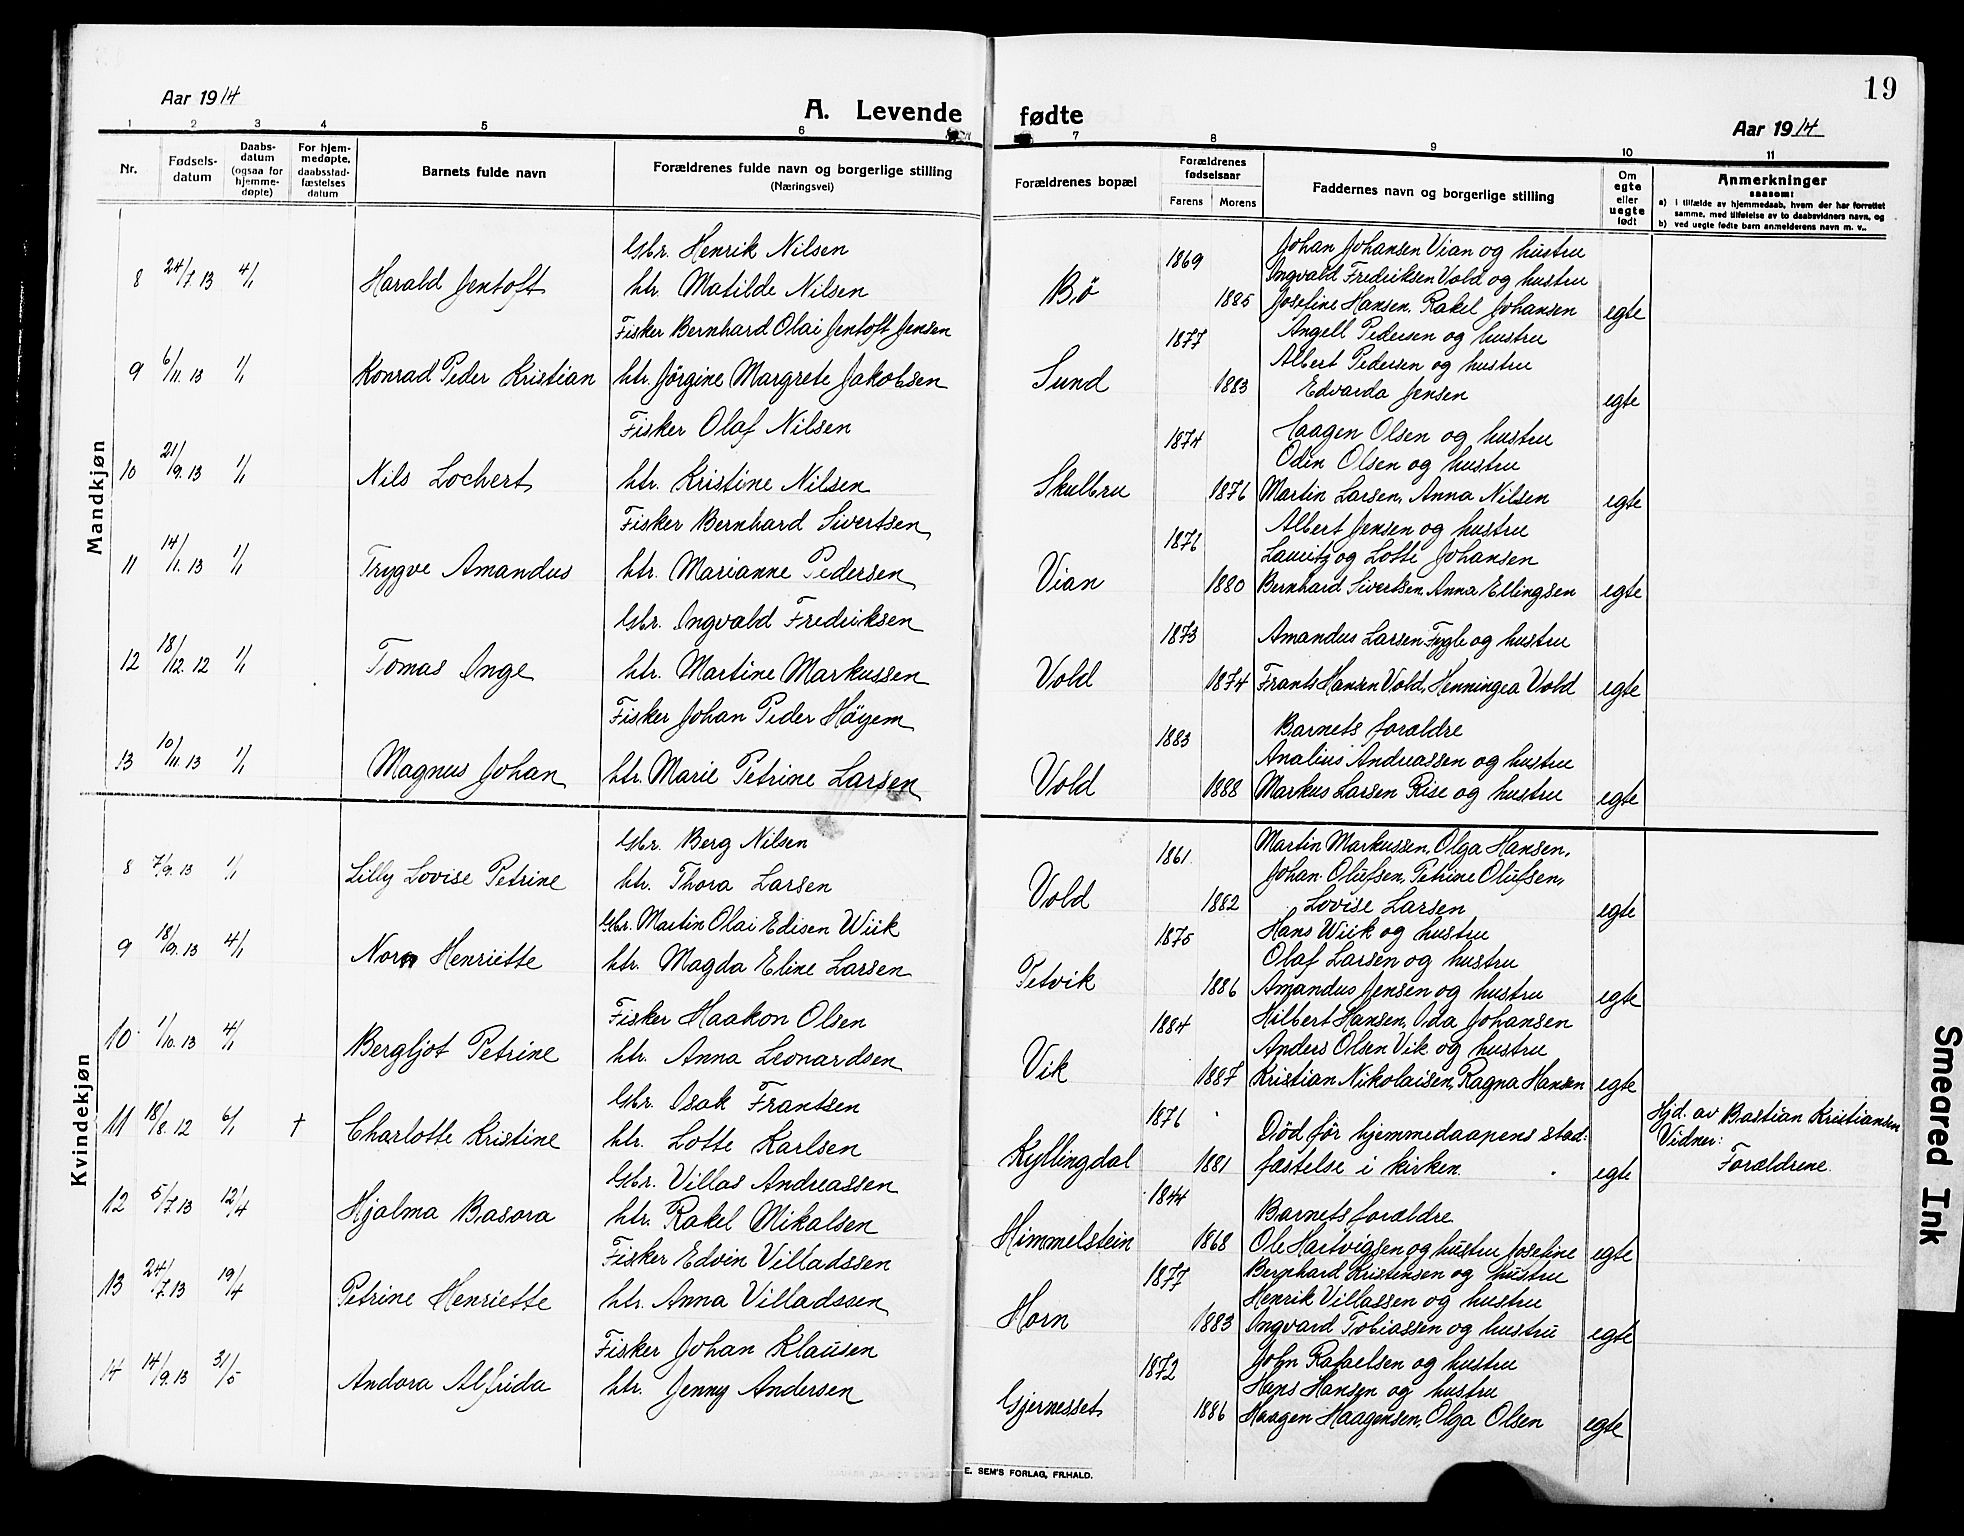 19
Aar 1914
A. Levende fødte
Aar 1914
1 2 3 4 5 6 7 8 9 10 11
Nr.
Fødselsdatum
Daabsdatum (ogsaa for hjemmedøpte)
For hjemmedøpte, daabsstadfæstelses datum
Barnets fulde navn
Forældrenes fulde navn og borgerlige stilling
(Næringsvei)
Forældrenes bopæl
Forældrenes fødselsaar
Farens Morens
Faddernes navn og borgerlige stilling
Om egte eller uegte født
Anmerkninger
saasom:
a) i tilfælde av hjemmedaab, hvem der har forrettet samme, med tilføielse av to daabsvidners navn, og
b) ved uegte fødte barn anmelderens navn m. v..
Mandkjøn
Gbr. Henrik Nilsen 1869 Johan Johansen Vian og hustru
8 24/7. 13 4/1 Harald Jentoft htr. Matilde Nilsen Bø Ingvald Fredriksen Vold og hustru
1885 Josefine Hansen, Rakel Johansen egte
Fisker Bernhard Olai Jentoft Jensen 1877 Angell Pedersen og hustru
9 6/11. 13 1/1 Konrad Peder Kristian htr. Jörgine Margrete Jakobsen Sund Albert Pedersen og hustru
1883 Edvarda Jensen egte
Fisker Olaf Nilsen 1874 Haagen Olsen og hustru
Odin Olsen og hustru
10 21/9. 13 1/1 Nils Lochert htr. Kristine Nilsen Skulbru 1876 Martin Larsen, Anna Nilsen egte
Fisker Bernhard Sivertsen 1876 Albert Jensen og hustru
Lauritz og Lotte Johansen
11 14/1. 13 1/1 Trygve Amandus htr. Marianne Pedersen Vian 1880 Bernhard Sivertsen, Anna Ellingsen egte
Gbr. Ingvald Fredriksen 1873 Amandus Larsen Fygle og hustru
12 18/12. 12 1/1 Tomas Inge htr. Martine Markussen Vold 1874 Frants Hansen Vold, Henningea Vold egte
Fisker Johan Peder Höyem 1883 Barnets forældre
Analius Andreassen og hustru
13 10/11. 13 1/1 Magnus Johan htr. Marie Petrine Larsen Vold 1888 Markus Larsen Rise og hustru egte
Kvindekjøn
Gbr. Berg Nilsen 1861. Martin Markussen, Olga Hansen,
8 7/9. 13 1/1 Lilly Lovise Petrine htr. Thora Larsen Vold Johan Olufsen, Petrine Olufsen,
1882 Lovise Larsen egte
Gbr. Martin Olai Edisen Wiik 1875 Hans Wiik og hustru
9 18/9. 13 4/1 Nora Henriette htr. Magda Eline Larsen Petvik Olaf Larsen og hustru
1886 Amandus Jensen og hustru egte
Fisker Haakon Olsen 1884 Hilbert Hansen, Oda Johansen
10 1/10. 13 4/1 Bergljot Petrine htr. Anna Leonardsen Vik Anders Olsen Vik og hustru
1887 Kristian Nikolaisen, Ragna Hansen egte
Gbr. Isak Frantsen 1876 Død før hjemmedaapens stad: Hjd. av Bastian Kristiansen
11 18/8. 12 6/1 † Charlotte Kristine htr. Lotte Karlsen Kyllingdal 1881 fæstelse i kirken. egte Vidner:
Forældrene.
Gbr. Villas Andreassen 1844 Barnets forældre
12 5/7. 13 12/4 Hjalma Basora htr. Rakel Mikalsen Himmelstein 1868 Ole Hartvigsen og hustru Josefine egte
Fisker Edvin Villadssen 1877 Bernhard Kristensen og hustru
13 24/7. 13 19/4 Petrine Henriette htr. Anna Villadssen Horn Henrik Villassen og hustru
1883 Ingvard Tobiassen og hustru egte
Fisker Johan Klausen 1872 John Rafaelsen og hustru
14 14/9. 13 31/5 Andora Alfrida htr. Jenny Andersen Gjernesset Hans Hansen og hustru
1886 Haagen Haagensen, Olga Olsen egte
E. SEM'S FORLAG, FR.HALD.
Smeared Ink